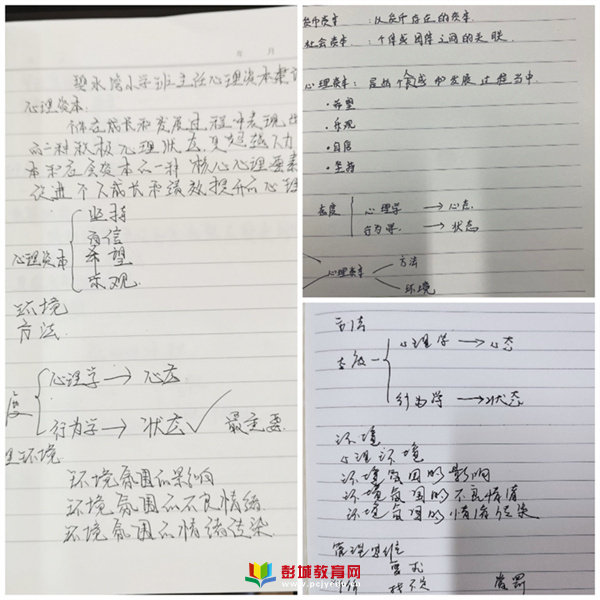 年 月
碧水湾小学班主任心理资本
心理资本
个体在成长和发展过程中表现出
的一种积极心理状态,是超越人力
本和社会资本的一种核心心理要素
促进个人成长和绩效提升的心理
心理资本
坚持
自信
希望
乐观
环境
方法
度
心理学 → 心态
行为学 → 状态 ✓ 最重要
里环境
环境氛围的影响
环境氛围的不良情绪
环境氛围的情绪传染
货币资本:以货币存在的资本
社会资本:个体或团体之间的关联
心理资本:是指个体成长和发展过程当中
·希望
·乐观
·自信
·坚持
态度
心理学 → 心态
行为学 → 状态
心理资本
方法
环境
方法
态度
心理学 → 心态
行为学 → 状态
环境
心理环境
环境氛围的影响
环境氛围的不良情绪
环境氛围的情绪传染
管理思维
要求
彭城教育网
www.pcjyw.com